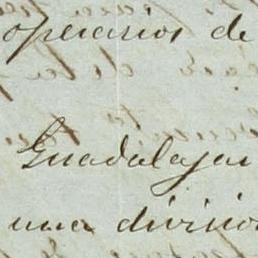 operarios de
Guadalajar
una divisio